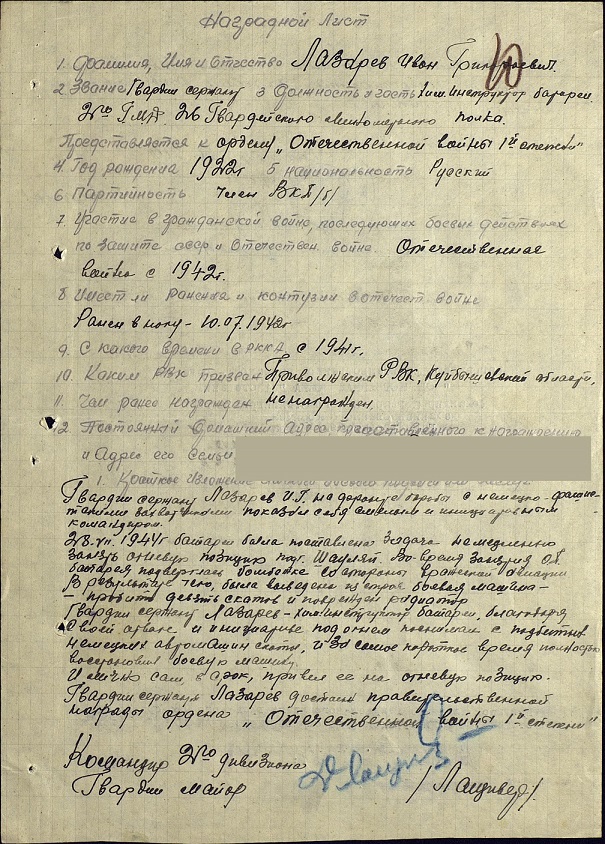 Наградной Лист
1. Фамилия, Имя и Отчество Лазарев Иван Григорьевич.
10
2. Звание Гвардии сержант 3 Должность и часть Хим. инструктор батареи
2го ГМД. 26 Гвардейского минометного полка.
Представляется к ордену „Отечественной войны 1й степени"
4. Год рождения 1922г 5 национальность Русский
6. Партийность Член ВКП/б/
7. Участие в гражданской войне, последующих боевых действиях
по защите СССР и Отечествен. войне. Отечественная
война с 1942г.
8 Имеет ли ранения и контузии в отечест. войне
Ранен в ногу - 10.07.1942г
9. С какого времени в РККА с 1941г.
10. Каким РВК призван Приволжским РВК, Куйбышевской области,
11. Чем ранее награжден ненагражден.
12. Постоянный домашний адрес представленного к награждению
и адрес его семьи
1. Краткое изложение
Гвардии сержант Лазарев И.Г. на фронте борьбы с немецко-фашис-
тскими захватчиками показал себя смелым и инициативным
командиром.
28.VII. 1944г батареи была поставлена задача немедленно
занять огневую позицию под г. Шауляй. Во время занятия О.П.
батарея подверглась бомбежке со стороны вражеской авиации
В результате чего, была выведена из строя боевая машина-
- пробито девять скатов и поврежден радиатор
Гвардии сержант Лазарев - хим. инструктор батареи, благодаря
своей отваге и инициативе под огнем поснимал с подбитых
немецких автомашин скаты, и за самое короткое время полностью
восстановил боевую машину.
И лично сам в срок, привел ее на огневую позицию.
Гвардии сержант Лазарев достоин правительственной
награды ордена „Отечественной войны 1й степени"
Командир 2го дивизиона
Гвардии майор